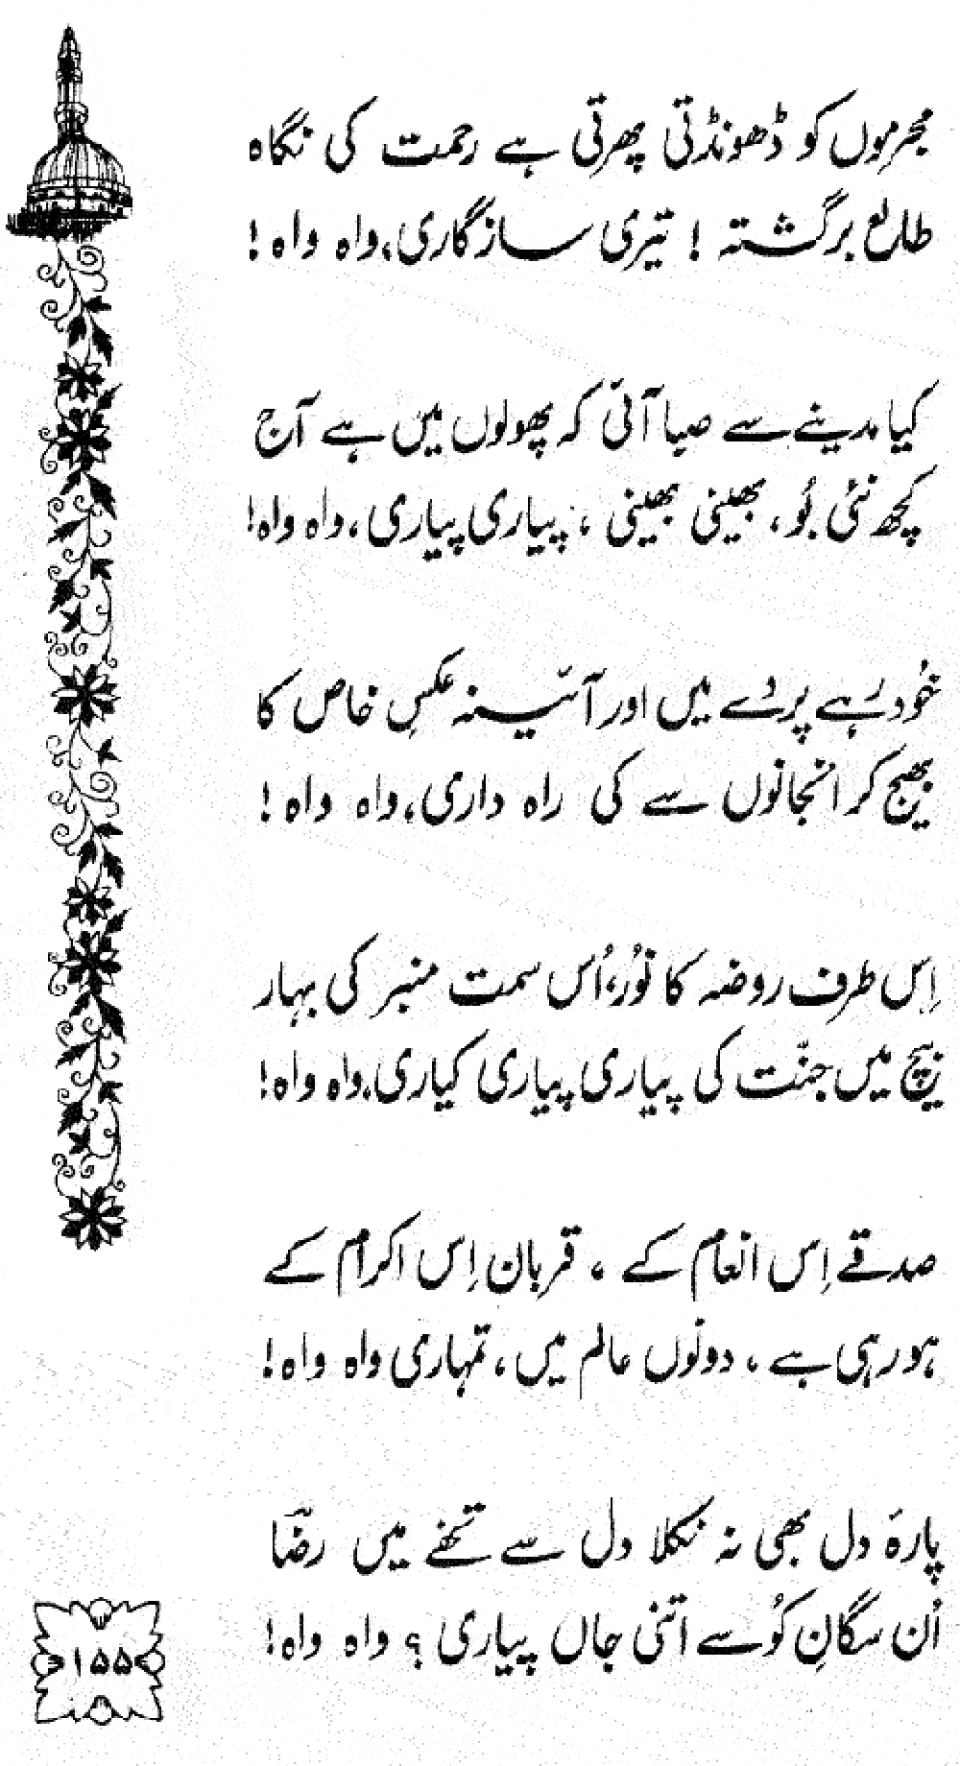 مجرموں کو ڈھونڈتی پھرتی ہے رحمت کی نگاہ
طالع برگشتہ ! تیری سازگاری، واہ واہ !
کیا مدینے سے صبا آئی کہ پھولوں میں ہے آج
کچھ نئی بُو، بھینی بھینی، پیاری پیاری، واہ واہ!
خُود رہے پردے میں اور آئینہ عکسِ خاص کا
بھیج کر انجانوں سے کی راہ داری، واہ واہ !
اِس طرف روضہ کا نُور، اُس سمت منبر کی بہار
بیچ میں جنّت کی پیاری پیاری کیاری، واہ واہ!
صدقے اِس انعام کے ، قربان اِس اکرام کے
ہو رہی ہے ، دونوں عالم میں ، تمہاری واہ واہ!
پارۂ دل بھی نہ نکلا دل سے تحفے میں رضاؔ
اُن سگانِ کُو سے اتنی جاں پیاری ؟ واہ واہ!
۱۵۵